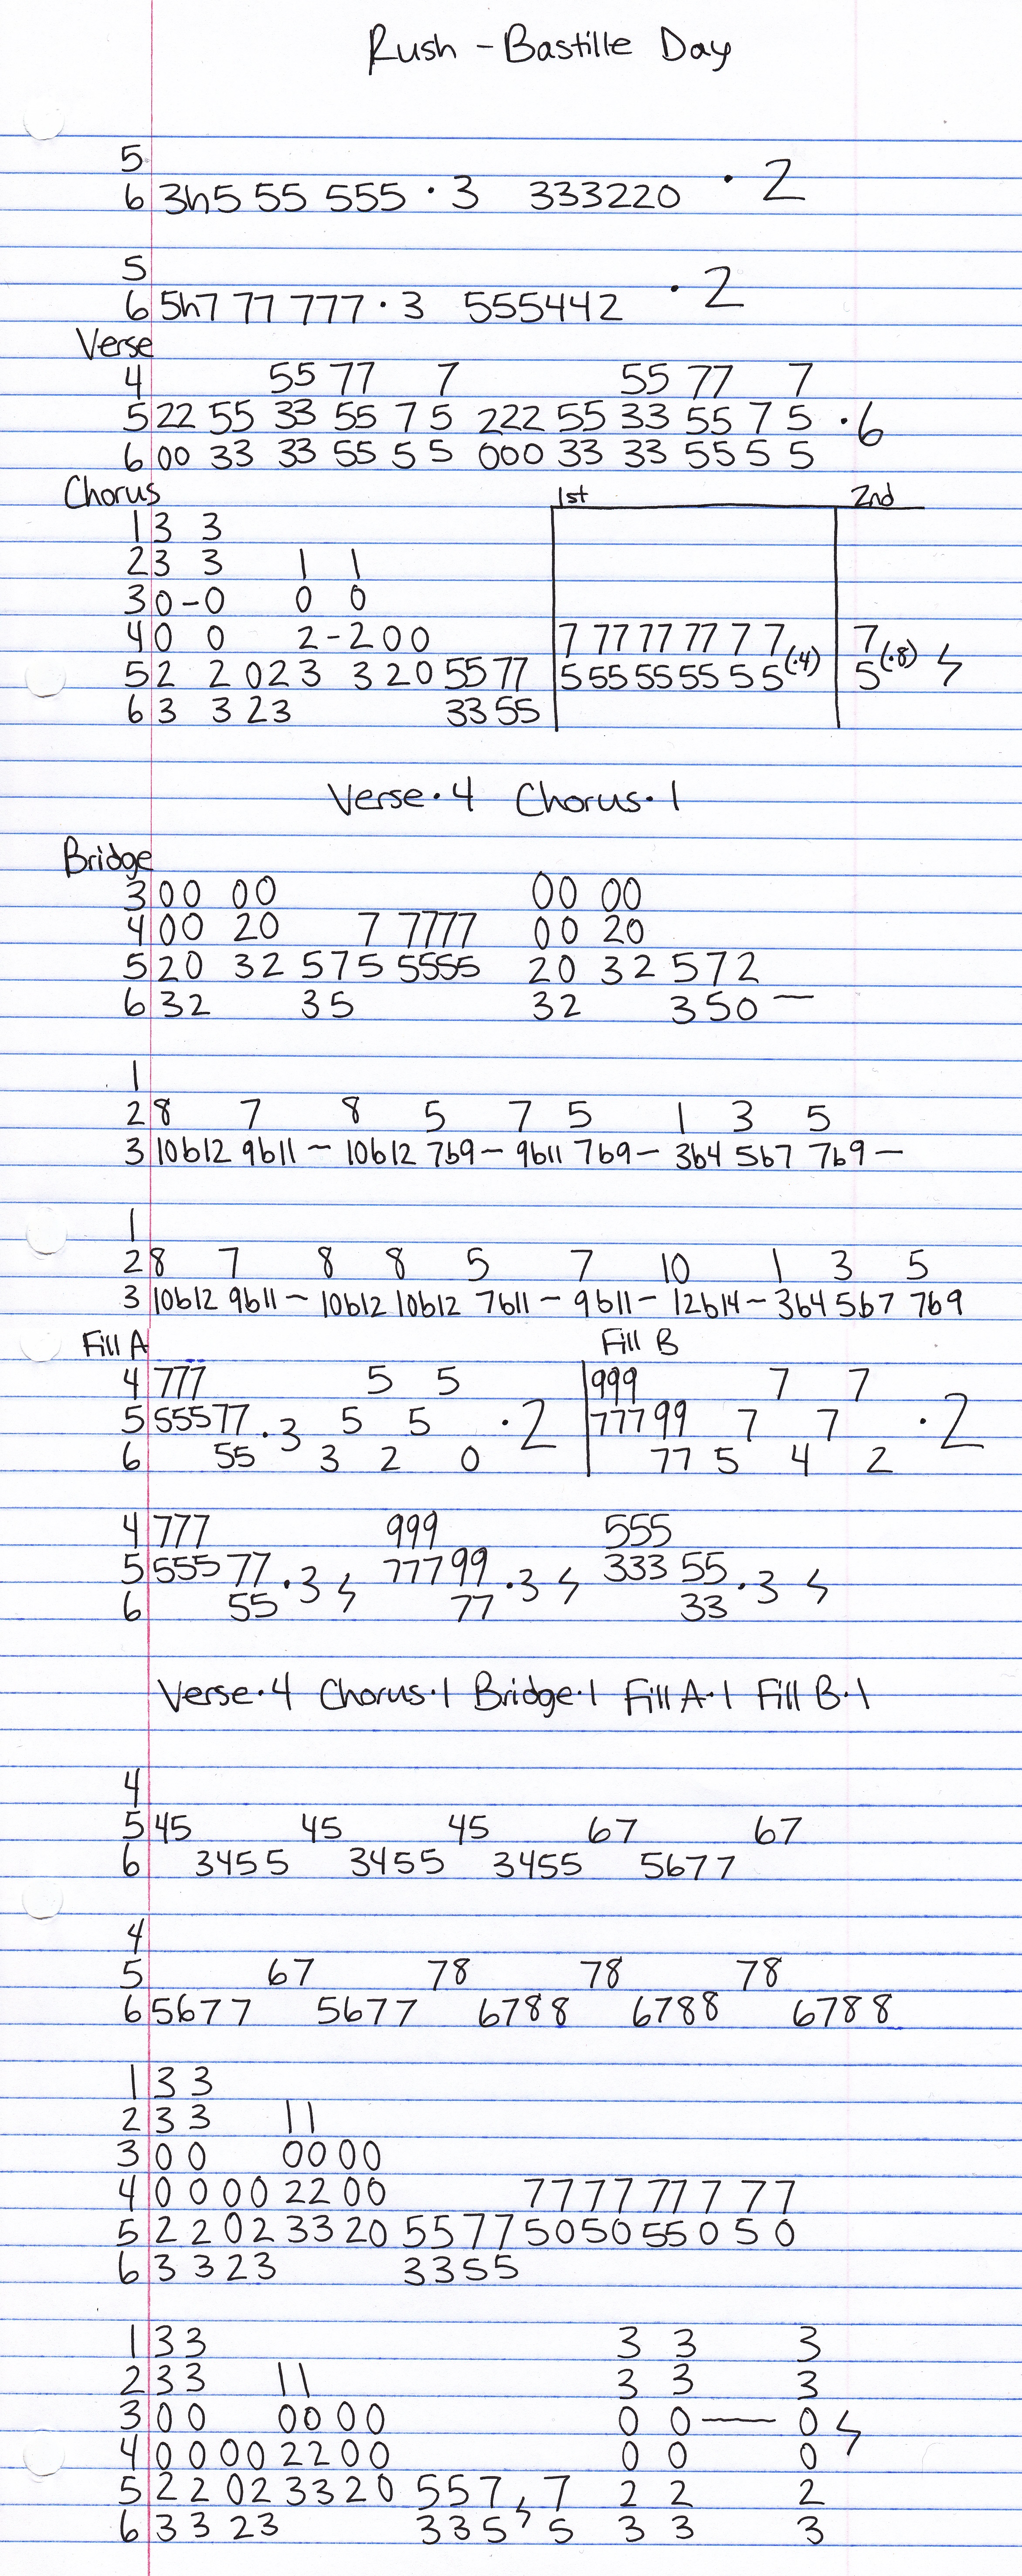 Rush - Bastille Day
5
6 3h5 55 555 · 3 333220 · 2
5
6 5h7 77 777 · 3 555442 · 2
Verse
4 55 77 7 55 77 7
5 22 55 33 55 7 5 222 55 33 55 7 5 · 6
6 00 33 33 55 5 5 000 33 33 55 5 5
Chorus 1st 2nd
1 3 3
2 3 3 1 1
3 0-0 0 0
4 0 0 2-200 7 77 77 77 7 7 (·4) 7 (·8)
5 2 2 023 320 55 77 5 55 55 55 5 5 5 ϟ
6 3 3 23 33 55
Verse · 4 Chorus · 1
Bridge
3 00 00 00 00
4 00 20 7 7777 00 20
5 20 32 575 5555 20 32 572
6 32 35 32 350 —
1
2 8 7 8 5 7 5 1 3 5
3 10b12 9b11 - 10b12 7b9 - 9b11 7b9 - 3b4 5b7 7b9 -
1
2 8 7 8 8 5 7 10 1 3 5
3 10b12 9b11 - 10b12 10b12 7b11 - 9b11 - 12b14 - 3b4 5b7 7b9
Fill A Fill B
4 777 5 5 999 7 7
5 55577 · 3 5 5 · 2 77799 7 7 · 2
6 55 3 2 0 77 5 4 2
4 777 999 555
5 555 77 · 3 ϟ 777 99 · 3 ϟ 333 55 · 3 ϟ
6 55 77 33
Verse · 4 Chorus · 1 Bridge · 1 Fill A · 1 Fill B · 1
4
5 45 45 45 67 67
6 3455 3455 3455 5677
4
5 67 78 78 78
6 5677 5677 6788 6788 6788
1 3 3
2 3 3 1 1
3 0 0 0000
4 0 0 00 22 00 7777 77 7 77
5 2 2 02 33 20 5577 5050 55 0 5 0
6 3 3 23 3355
1 3 3 3 3 3
2 3 3 1 1 3 3 3
3 0 0 00 00 0 0 — 0 ϟ
4 0 0 00 22 00 0 0 0
5 2 2 02 33 20 557 ϟ 7 2 2 2
6 3 3 23 335 5 3 3 3